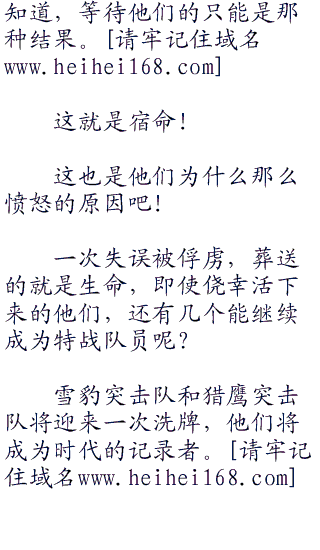 知道，等待他们的只能是那
种结果。[请牢记住域名
www.heihei168.com]
这就是宿命！
这也是他们为什么那么
愤怒的原因吧！
一次失误被俘虏，葬送
的就是生命，即使侥幸活下
来的他们，还有几个能继续
成为特战队员呢？
雪豹突击队和猎鹰突击
队将迎来一次洗牌，他们将
成为时代的记录者。[请牢记
住域名www.heihei168.com]